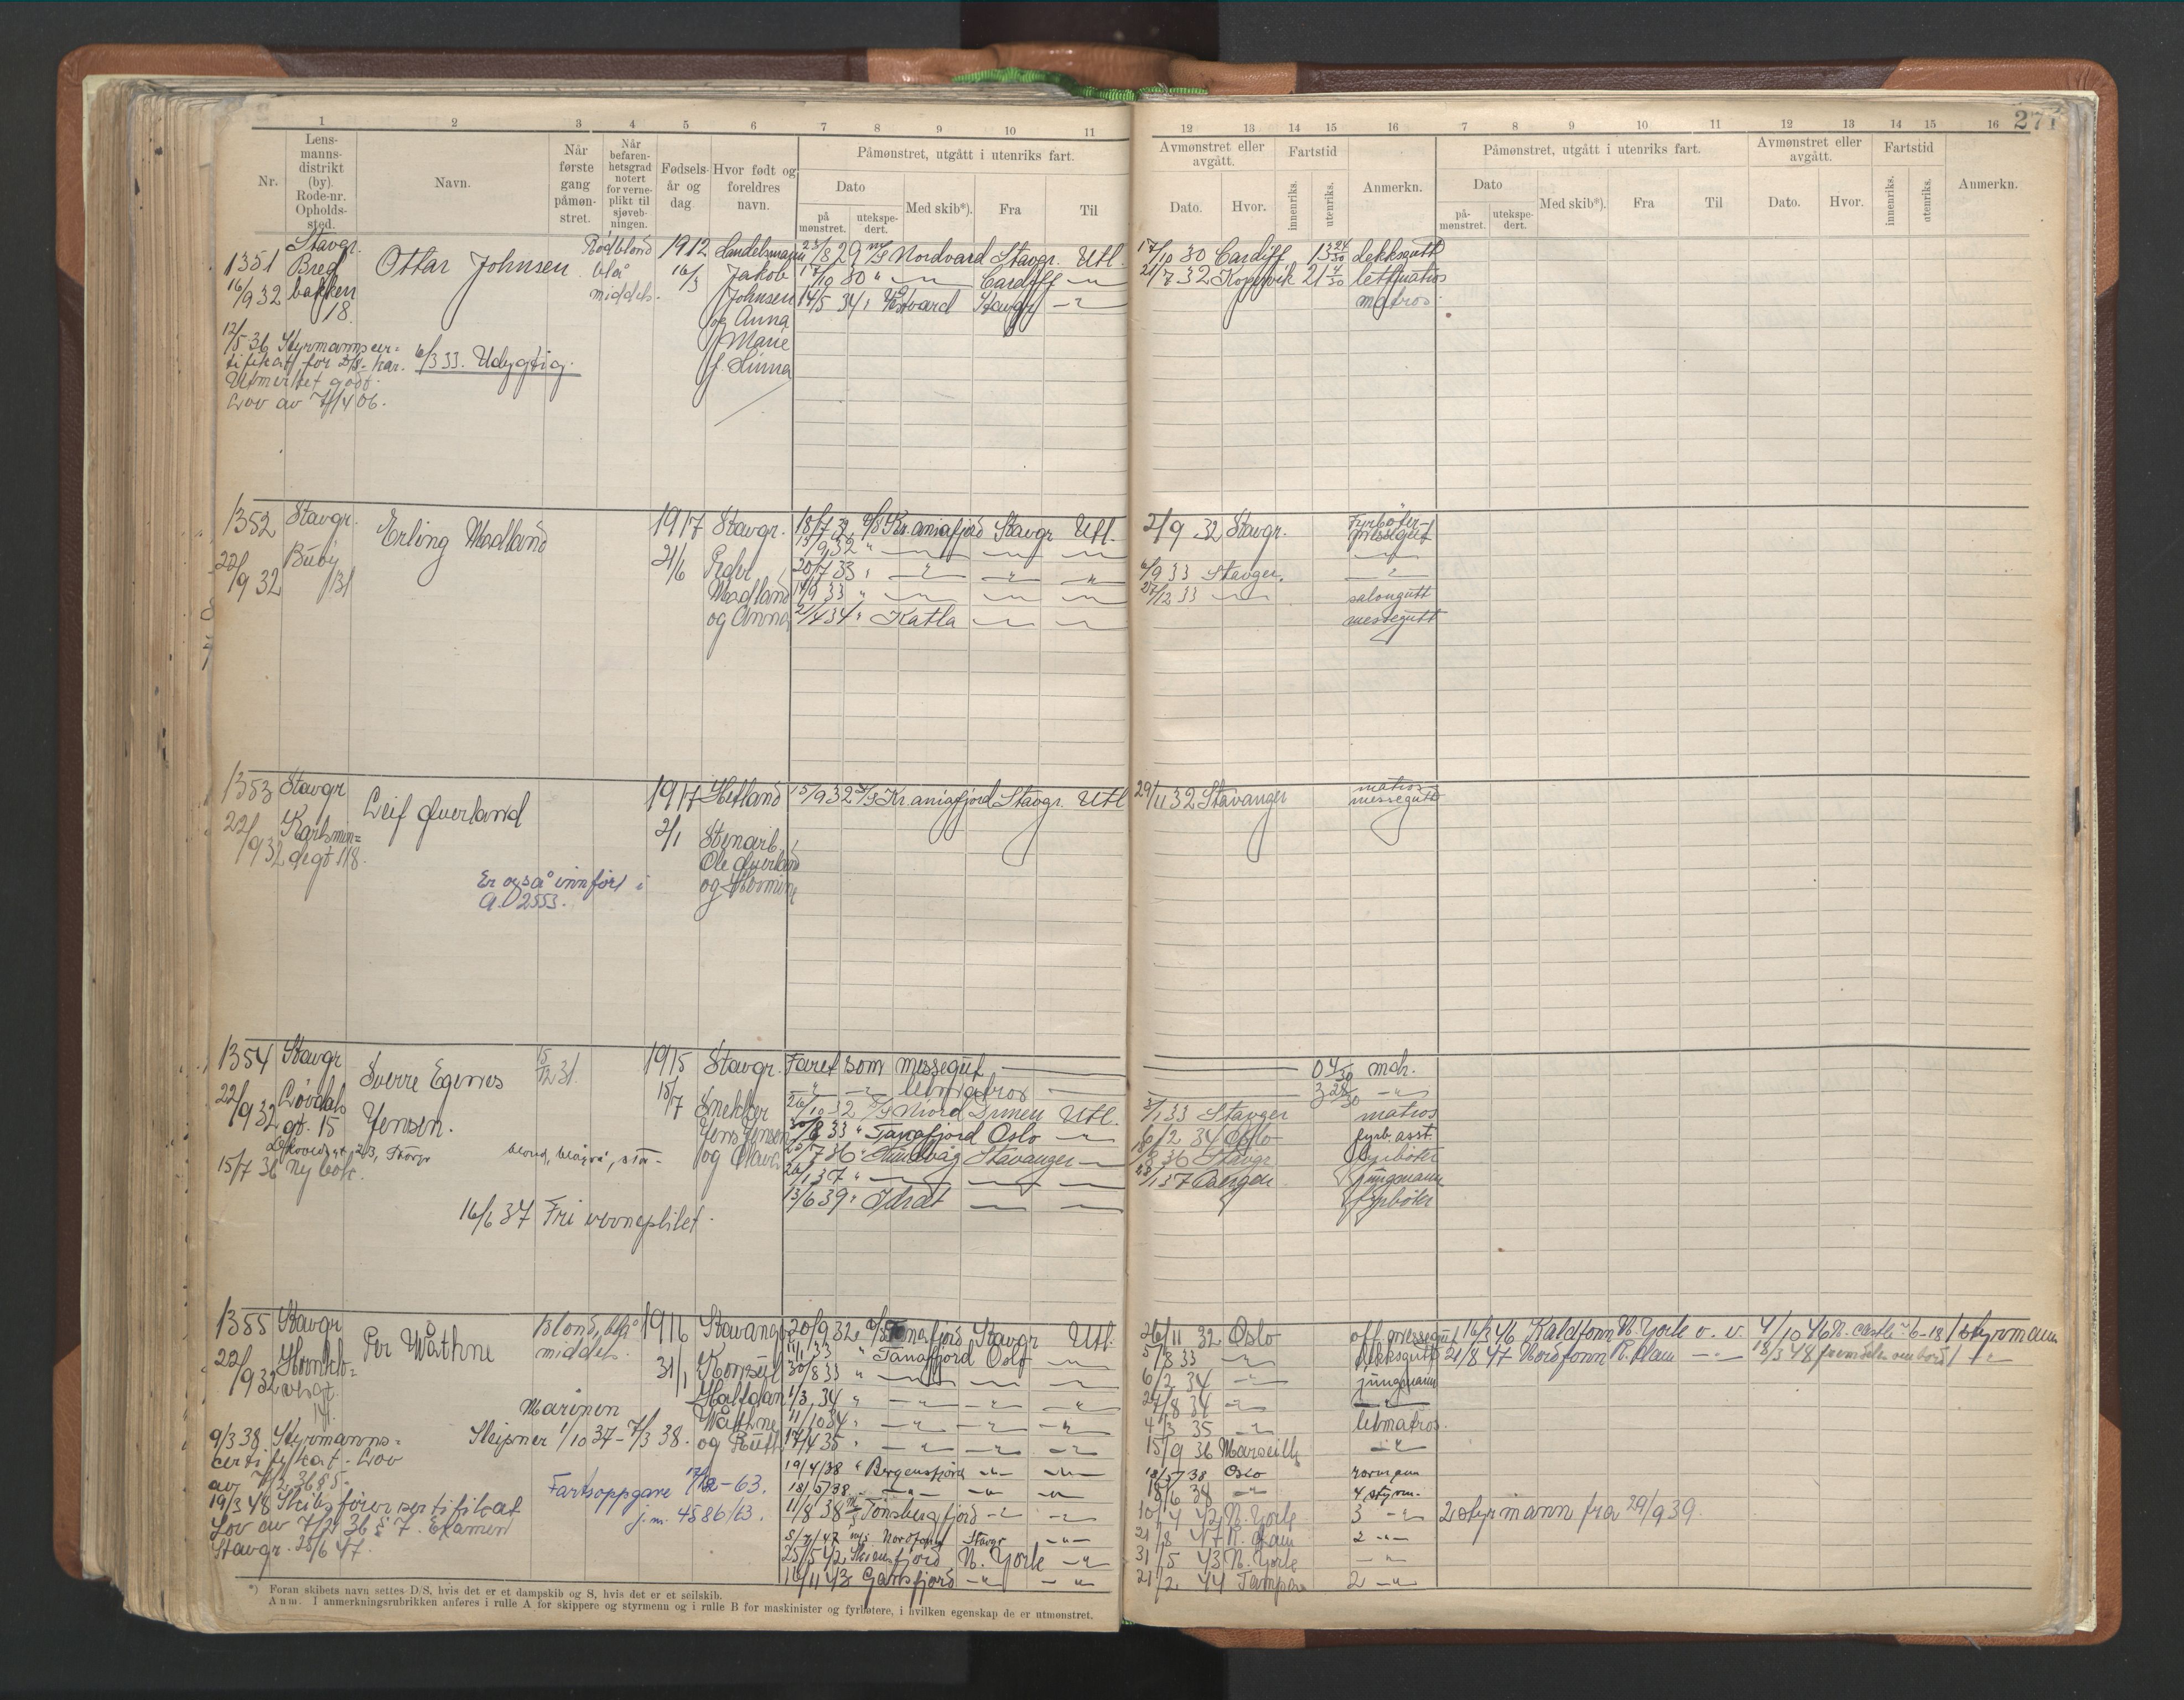 1 2 3 4 5 6 7 8 9 10 11
12 13 14 15 16 7 8 9 10 11 12 13 14 15 16 271
Nr.
Lens-
manns-
distrikt
(by).
Rode-nr.
Opholds-
sted.
Navn.
Når
første
gang
påmøn-
stret.
Når
befaren-
hetsgrad
notert
for verne-
plikt til
sjøveb-
ningen.
Fødsels-
år og
dag
Hvor født og
foreldres
navn.
Påmønstret, utgått i utenriks fart.
Dato
på
mønstret.
utekspe-
dert.
Med skib*).
Fra
Til
Avmønstret eller
avgått.
Dato.
Hvor.
Fartstid
innenriks.
utenriks.
Anmerkn.
Påmønstret, utgått i utenriks fart.
Dato
på-
mønstret.
utekspe-
dert.
Med skib*).
Fra
Til
Avmønstret eller
avgått.
Dato.
Hvor.
Fartstid
innenriks.
utenriks.
Anmerkn.
1351
16/9 32
Stavgr.
Bred
bakken
18
Ottar Johnsen
Rødblond
blå
middels.
1912
16/3
Handelsmann
Jakob
Johnsen
og Anna
Marie
f. Hinna
12/5 36 Styrmannscer=
tifikat
Utmerket godt.
Lov av
6/3 33. Udygtig.
23/8 29 M/S Nordvard Stavgr. Utl. 17/10 30 Cardiff 13 24/30 dekksgutt
17/10 30 " — Cardiff — 21/7 32 Kopervik 21 4/30 lettmatros
14/5 34 Stavgr — matros
1352
22/9 32
Stavgr.
Buøy
131
Erling Madland
1917
21/6
Stavgr.
Peder
Madland
og Anna
18/7 32 D/S Kr.aniafjord Stavgr Utl. 2/9 32 Stavgr. Fyrbøter-
messegut
13/9 32 " — — —
20/7 33 " — " " 6/9 33 Stavger. —
14/9 33 " — — — 27/12 33 — salongutt
21/4 34 " Katla — — messegutt
1353
22/9 32
Stavgr
Karlsmin=
degt 118.
Leif Øverland
1917
2/1
Hetland
Stenarb.
Ole Øverland
og Hermine
15/9 32 D/S Kr.aniafjord Stavgr. Utl 29/11 32 Stavanger matros
messegutt
Er også innført i
A. 2553.
1354
22/9 32
Stavgr
Løvdals
gt. 15
Sverre Egenes
Jensen.
15/12 31.
1915
15/7
Stavgr.
Snekker
Jens Jensen
og Olava
15/7 36 Ny bok.
blond, blågrå,
16/6 37 Fri verneplikt.
Faret som messegut — 0 4/30 mdr.
— " — letmatros — 3 28/30 — "
26/10 32 D/S Njord Utl. 3/1 33 Stavger matros
30/8 33 " Tanafjord Oslo — 6/2 34 Oslo fyrb. asst.
Sundvåg Stavanger — Stavgr fyrbøter
26/1 37 " — — — Bergen jungmann
13/6 39 " Idræt — — fyrbøter
1355
22/9 32
Stavgr
Per Wåthne
Blond, blå
middels.
1916
31/1
Stavanger
Konsul
Halfdan
Wåthne
og Ruth
Marinen
Sleipner 1/10 37 – 7/3 38.
9/3 38 Styrmanns=
certifikat. Lov
av 7/2 36 § 5.
19/3 48 Skibsførersertifikat
Lov av 7/2 36 § 7. Eksamen
Stavgr. 28/6 47.
Fartsoppgave 17/2 – 63.
j.nr. 4586/63.
20/9 32 D/S Tanafjord Stavgr Utl. 26/11 32 Oslo off. messegut 16/2 46 Kaldfonn N. York v. v. 4/10 46 N. castle 6-18 1 styrmann
11/1 33 " Tanafjord Oslo — 5/8 33 — dekksgutt 21/8 47 Nordfonn R. dam — 18/3 48 fremdeles ombord 1 —
30/8 33 " — — — 6/2 34 — jungmann
1/3 34 " — — — 24/8 34 — —
11/10 34 " — — — 4/3 35 — letmatros.
17/4 35 " — — — 15/9 36 Marseille —
19/4/38 " Bergensfjord — — 18/5/38 Oslo rormann
18/5/38 — — — 8/6 38 — 4 styrm.
11/8 38 M/S Tønsbergfjord — — 10/4 42 N. York 3 — 2 styrmann fra 29/9 39.
5/7/47 M/S Nordfonn Stavgr — 21/8 47 R. dam 2 —
25/5 42 Skiensfjord N. York — 31/5 43 N. York —
16/11 43 Gansfjord — — 21/2 44 Tampa 2 —
*) Foran skibets navn settes D/S, hvis det er et dampskib og S, hvis det er et seilskib.
Anm. I anmerkningsrubrikken anføres i rulle A for skippere og styrmenn og i rulle B for maskinister og fyrbøtere, i hvilken egenskap de er utmønstret.